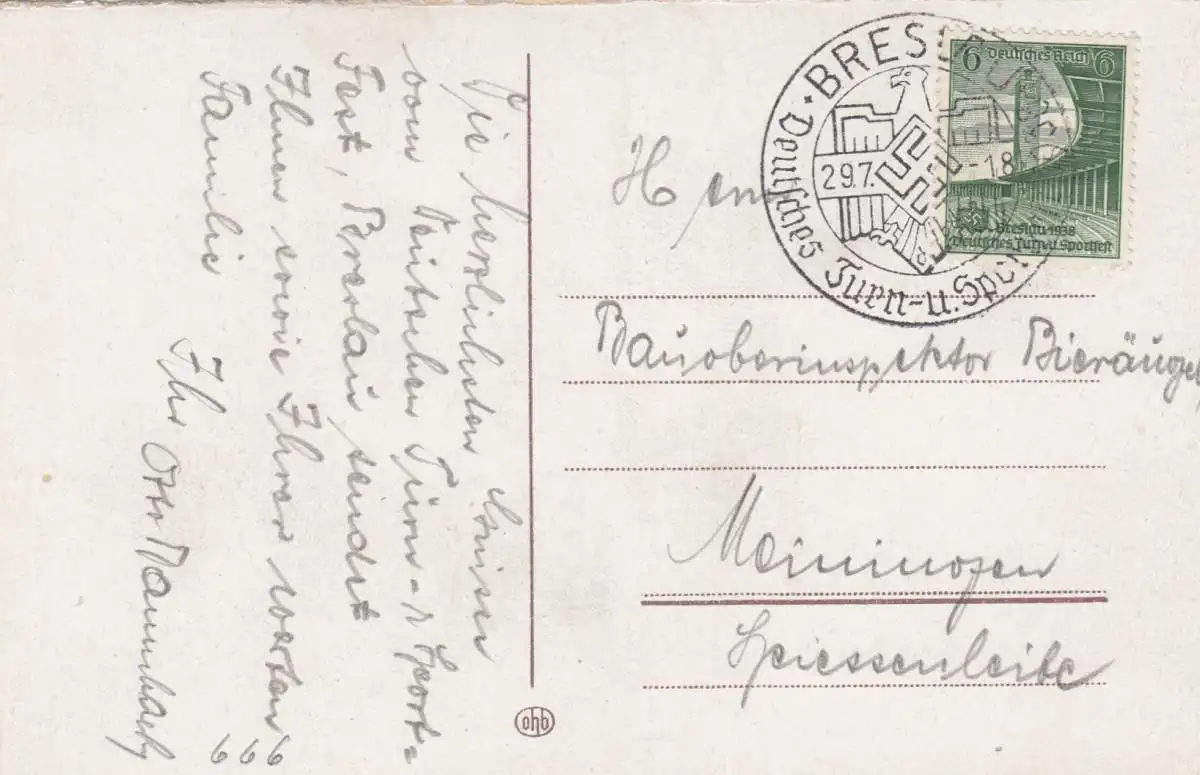 Die herzlichsten Grüsse
vom Deutschen Turn- & Sport-
Fest, Breslau sendet
Ihnen sowie Ihrer werten
Familie
Ihr Otto
BRESLAU
29.7.
-
Deutsches Turn-u. Sport
6 Deutsches Reich 6
Breslau 1938
Deutsches Turn-u. Sportfest
Herrn
Bauoberinspektor
Meiningen
ohb